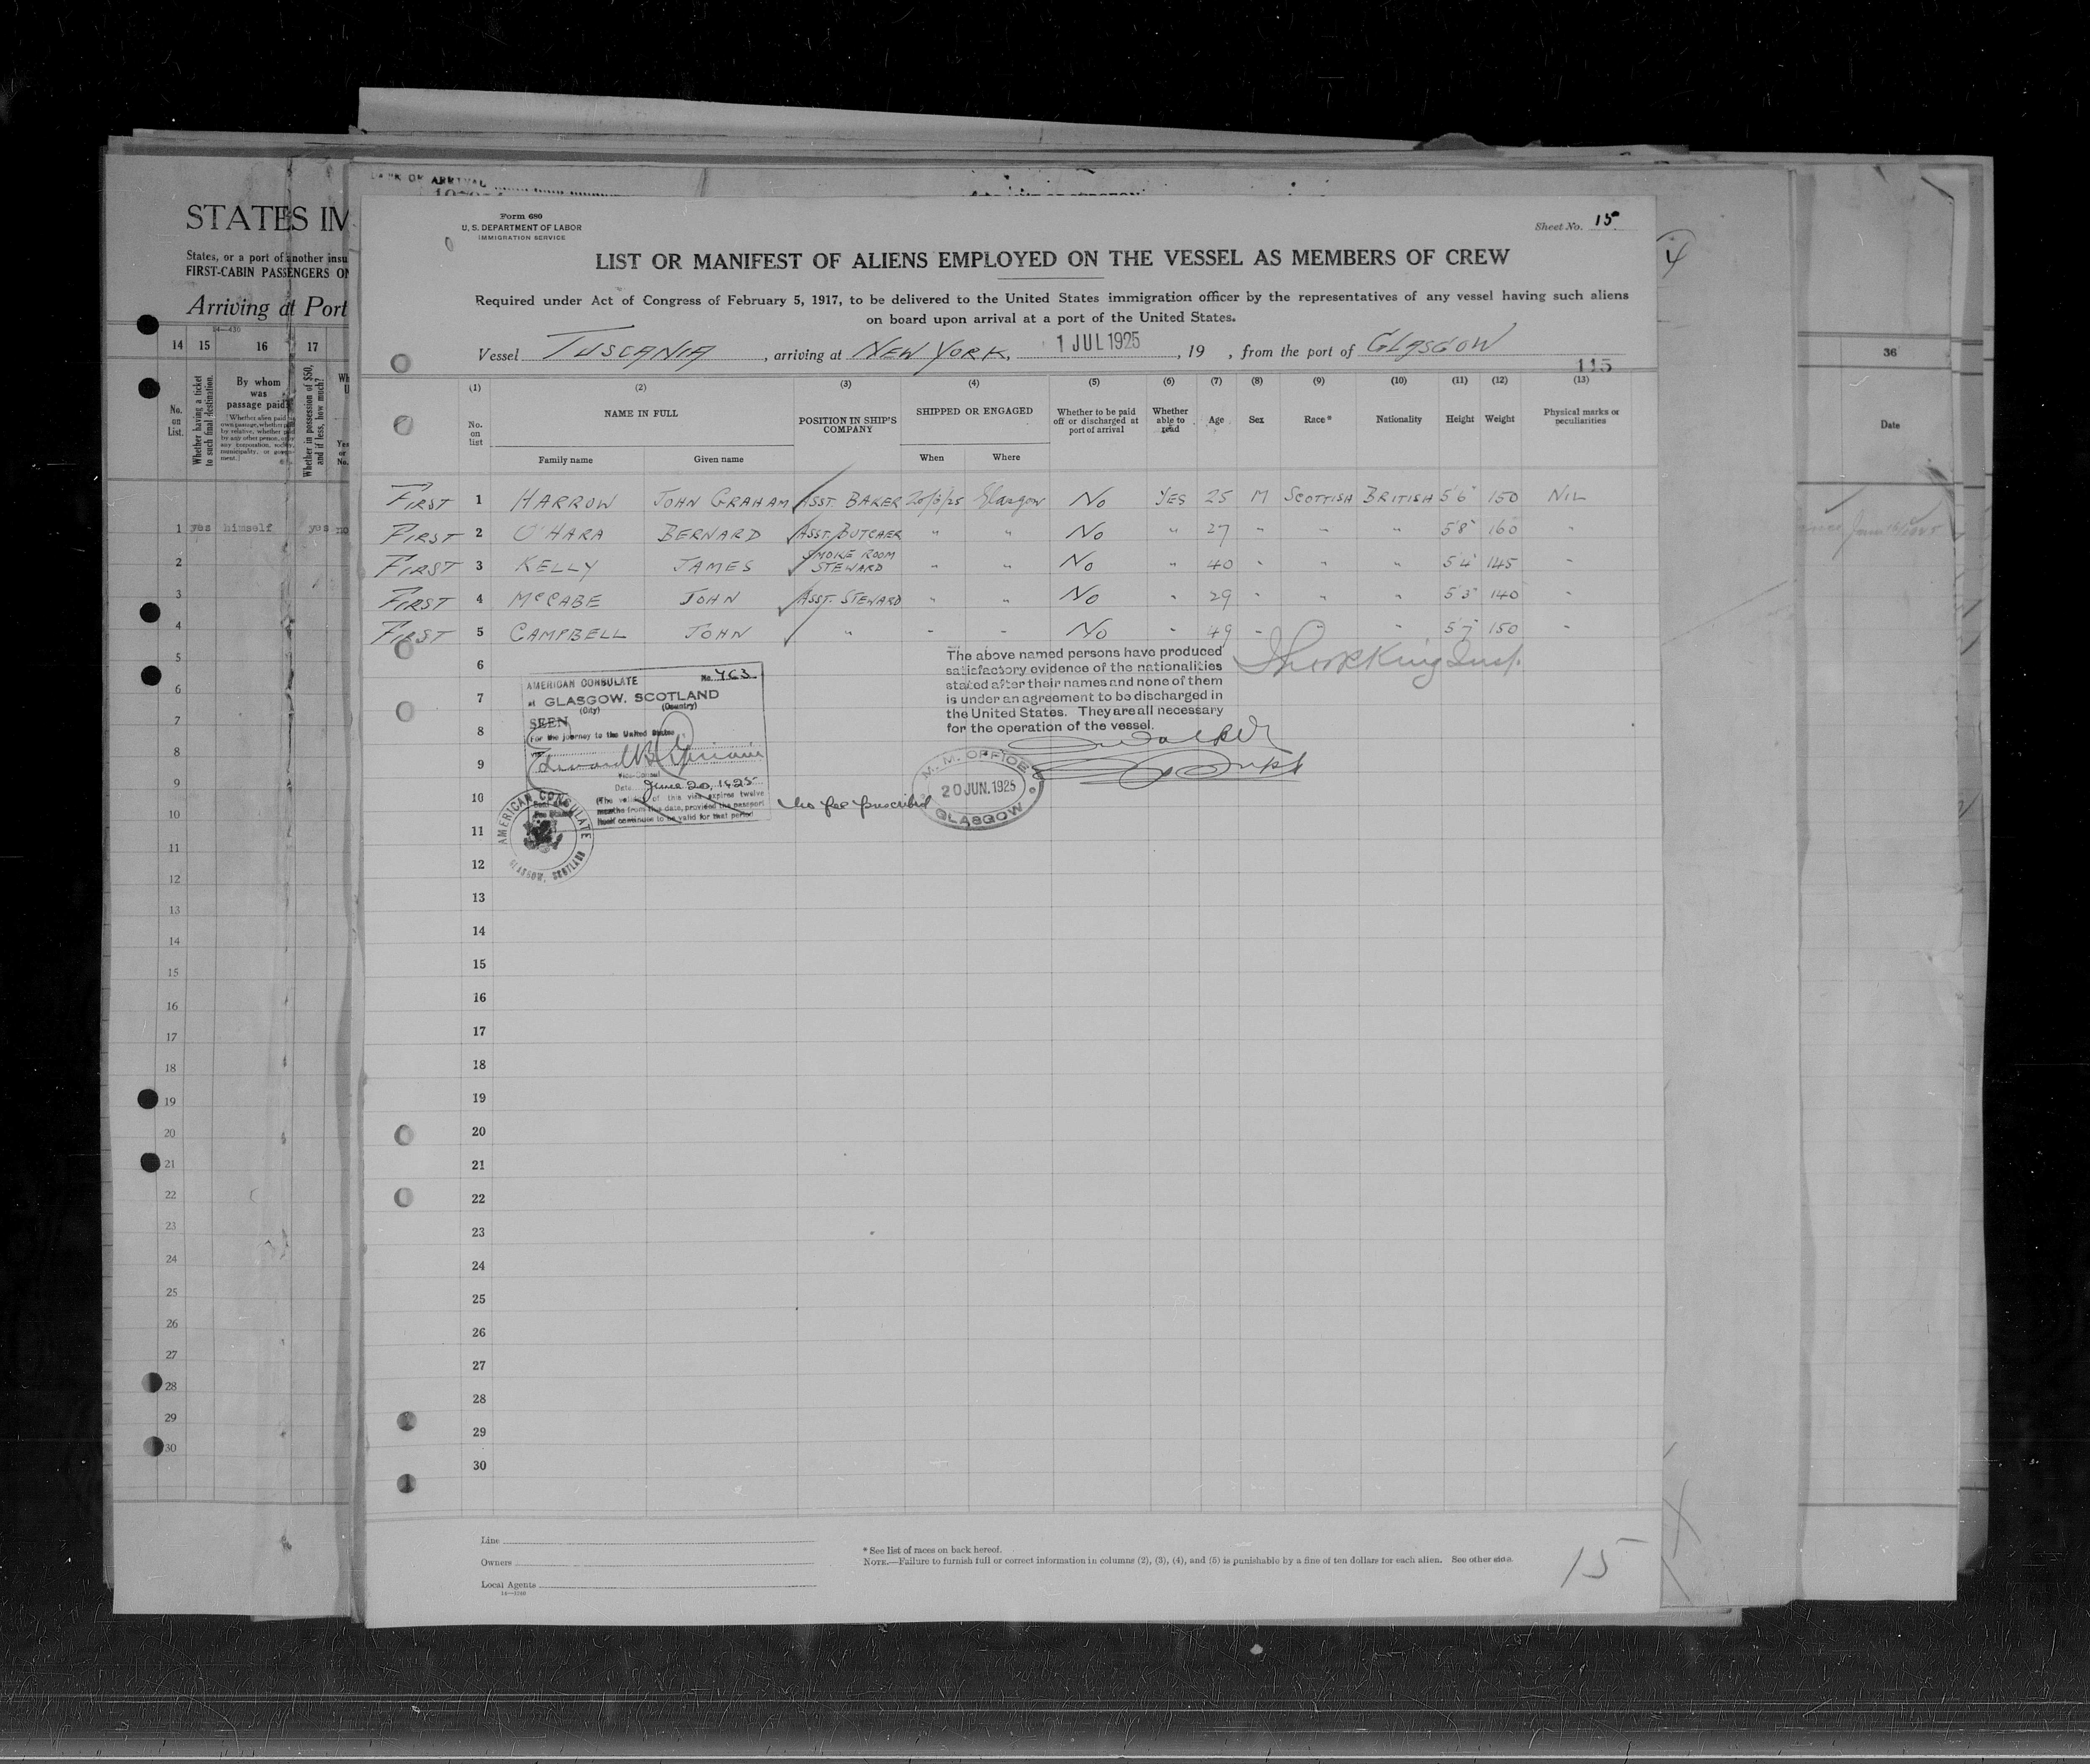 STATES IM
States, or a port of another insu
FIRST-CABIN PASSENGERS ON
Arriving at Port
14 15 16 17
No. on List.
Whether having a ticket to such final destination.
By whom was passage paid?
Whether in possession of $50, and if less, how much?
1 yes himself yes no
2
3
4
5
6
7
8
9
10
11
12
13
14
15
16
17
18
19
20
21
22
23
24
25
26
27
28
29
30
Form 680
U. S. DEPARTMENT OF LABOR
IMMIGRATION SERVICE
Sheet No. 15
LIST OR MANIFEST OF ALIENS EMPLOYED ON THE VESSEL AS MEMBERS OF CREW
Required under Act of Congress of February 5, 1917, to be delivered to the United States immigration officer by the representatives of any vessel having such aliens
on board upon arrival at a port of the United States.
Vessel TUSCANIA, arriving at NEW YORK, 1 JUL 1925, 19 , from the port of GLASGOW
115
(1) (2) (3) (4) (5) (6) (7) (8) (9) (10) (11) (12) (13)
No. on list
NAME IN FULL
Family name Given name
POSITION IN SHIP'S COMPANY
SHIPPED OR ENGAGED
When Where
Whether to be paid off or discharged at port of arrival
Whether able to read
Age Sex Race* Nationality Height Weight
Physical marks or peculiarities
FIRST 1 HARROW JOHN GRAHAM ASST. BAKER 20/6/25 Glasgow No YES 25 M SCOTTISH BRITISH 5'6" 150 NIL
FIRST 2 O'HARA BERNARD ASST. BUTCHER " " No " 27 " " " 5'8" 160 "
FIRST 3 KELLY JAMES SMOKE ROOM STEWARD " " No " 40 " " " 5'4" 145 "
FIRST 4 McCABE JOHN ASST. STEWARD " " No " 29 " " " 5'3" 140 "
FIRST 5 CAMPBELL JOHN " " " No " 49 " " " 5'7" 150 "
6
7
8
9
10
11
12
13
14
15
16
17
18
19
20
21
22
23
24
25
26
27
28
29
30
The above named persons have produced
satisfactory evidence of the nationalities
stated after their names and none of them
is under an agreement to be discharged in
the United States. They are all necessary
for the operation of the vessel.
AMERICAN CONSULATE No. 463
at GLASGOW, SCOTLAND
(City) (Country)
SEEN
For the journey to the United States
Vice-Consul
Date June 20, 1925
(The validity of this visa expires twelve
months from this date, provided the passport
itself continues to be valid for that period
No fee prescribed
AMERICAN CONSULATE
GLASGOW, SCOTLAND
M. M. OFFICE
20 JUN. 1925
GLASGOW
Line
Owners
Local Agents
* See list of races on back hereof.
NOTE.—Failure to furnish full or correct information in columns (2), (3), (4), and (5) is punishable by a fine of ten dollars for each alien. See other side.
15
36
Date